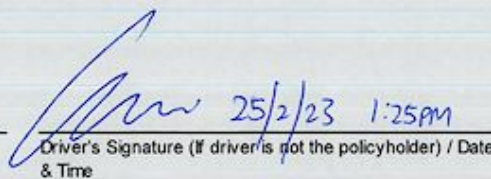 25/2/23 1:25PM
Driver's Signature (If driver is not the policyholder) / Date
& Time